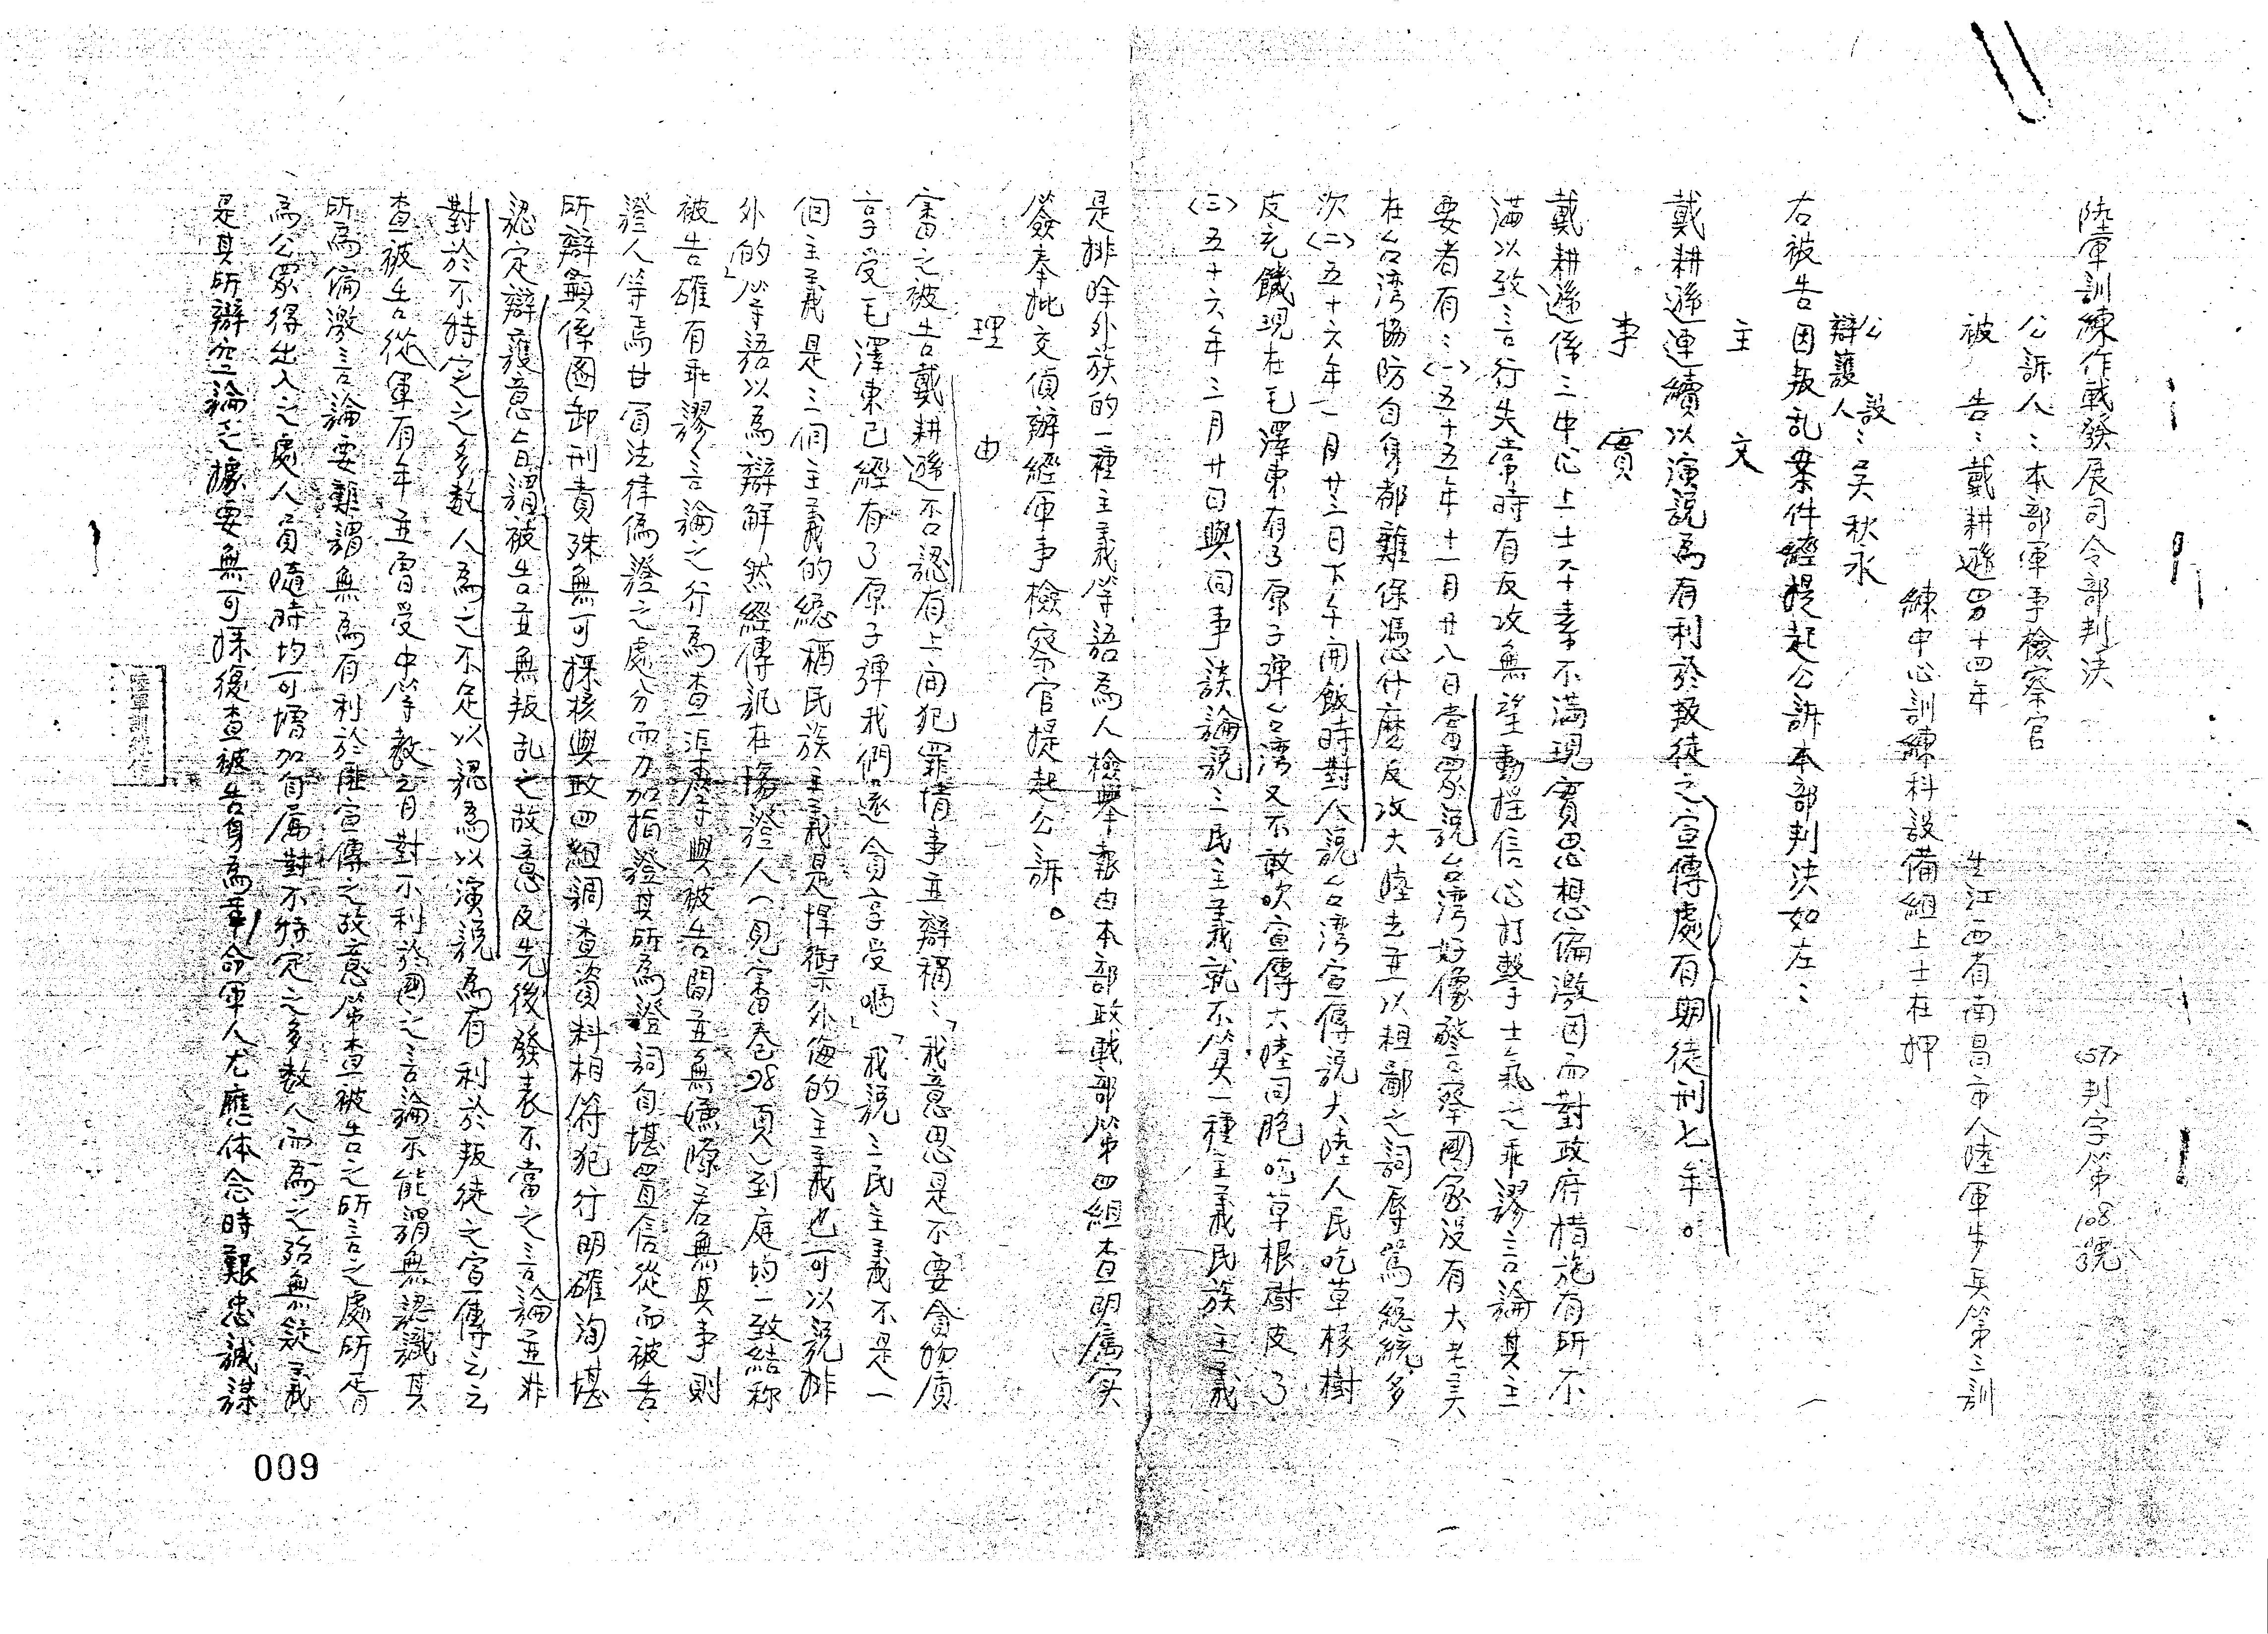 陸軍訓練作戰發展司令部判決
(57)判字第108號
公訴人：本部軍事檢察官
被告：戴耕遜男十四年 生江西省南昌市人陸軍步兵第三訓
練中心訓練科設備組上士在押
公設
辯護人：吳秋永
右被告因叛乱案件經提起公訴本部判決如左：
主文
戴耕遜連續以演說為有利於叛徒之宣傳處有期徒刑七年。
事實
戴耕遜係三中心上士夲不滿現實思想偏激因而對政府措施有所不
滿以致言行失當時有反攻無望動搖信心打擊士氣之乖謬言論其主
要者有：(一)五十五年十一月廿八日當眾說台湾好像警察國家沒有大老美
在台湾協防自身都難保憑什麼反攻大陸去並以粗鄙之詞辱駡總統多
次(二)五十六年一月廿三日下午開飯時對人說台湾宣傳說大陸人民吃草根樹
皮充饑現在毛澤東有了原子彈台湾又不敢吹宣傳大陸同胞吃草根樹皮了
(三)五十六年三月廿日與同事談論說三民主義就不算一種主義民族主義
是排除外族的一種主義等語為人檢舉報由本部政戰部第四組查明属实
簽奉批交偵辦經軍事檢察官提起公訴。
理由
審之被告戴耕遜否認有上開犯罪情事並辯稱：「我意思是不要貪物質
享受毛澤東已經有了原子彈我們還貪享受嗎」「我說三民主義不是一
個主義是三個主義的總稱民族主義是捍衛外侮的主義也可以說排
外的」等語以為辯解然經傳訊在場證人(見審卷98頁)到庭均一致結称
被告確有乖謬言論之行為查証李與被告間並無嫌隙若無其事則
證人等焉甘冒法律偽證之處分而力加指證其所為證詞自堪置信從而被告
所辯顯係圖卸刑責殊無可採核與政四組調查資料相符犯行明確洵堪
認定辯護意旨謂被告並無叛乱之故意及先後發表不當之言論並非
對於不特定之多數人為之不足以認為以演說為有利於叛徒之宣傳云云
查被告從軍有年並曾受中等教育對不利於國之言論不能謂無認識其
所為偏激言論要難謂無為有利於匪宣傳之故意第查被告之所言之處所皆
為公眾得出入之處人員隨時均可增加自屬對不特定之多數人而為之殆無疑義
是其所辯空論乏據要無可採復查被告身為革命軍人尤應体念時艱忠誠謀
陸軍訓練作
009